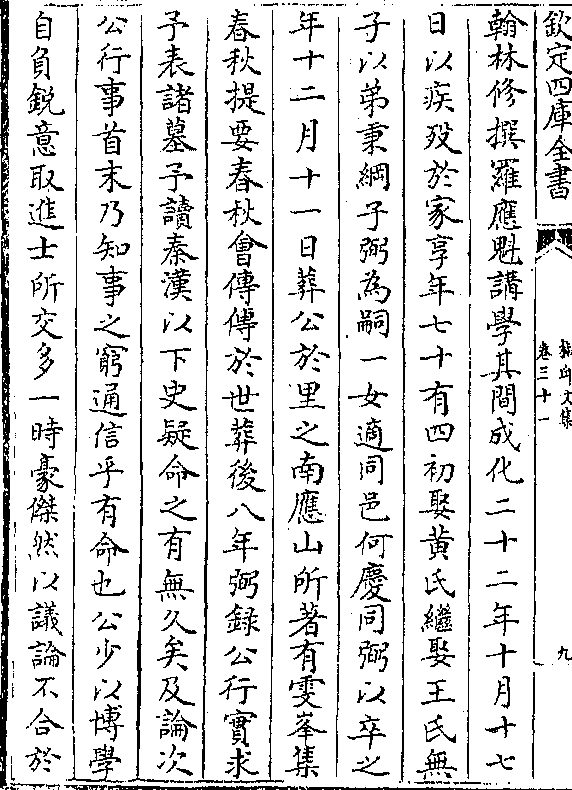 欽定四庫全書
卷三十一
九
翰林修撰羅應魁講學其間成化二十二年十月十七
日以疾歿於家享年七十有四初娶黄氏繼娶王氏無
子以弟秉綱子弼為嗣一女適同邑何慶同弼以卒之
年十二月十一日葬公於里之南應山所著有雯峯集
春秋提要春秋㑹傳傳於世葬後八年弼錄公行實求
予表諸墓予讀秦漢以下史疑命之有無久矣及論次
公行事首末乃知事之窮通信乎有命也公少以博學
自負鋭意取進士所交多一時豪傑然以議論不合於